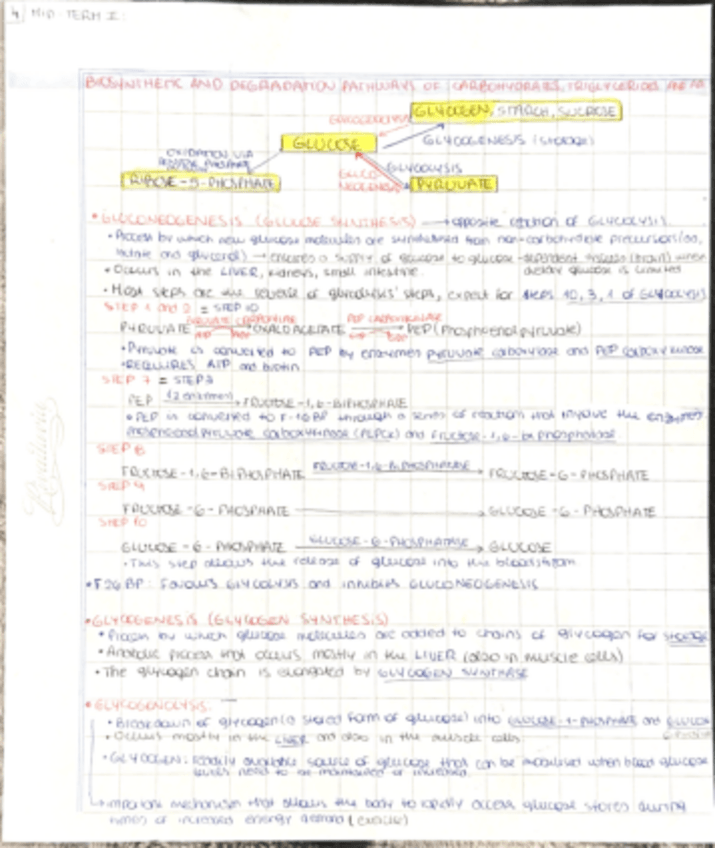 4) MID-TERM I:
BIOSYNTHETIC AND DEGRADATION PATHWAYS OF CARBOHYDRATES, TRIGLYCERIDES AND FA
GLYCOGEN, STARCH, SUCROSE
GLUCOSE
GLYCOGENESIS (STORAGE)
OXIDATION VIA
GLYCOLYSIS
GLUCO
NEOGENESIS
RIBOSE-5-PHOSPHATE
PYRUVATE
• GLUCONEOGENESIS (GLUCOSE SYNTHESIS) → opposite of GLYCOLYSIS.
• Process by which new glucose molecules are synthesised from non-carbohydrate precursors
lactate and glycerol) → ensures a supply of glucose to glucose-dependent tissues (brain) when
• Occurs in the LIVER, kidneys, small intestine. dietary glucose is limited
• Most steps are the reverse of glycolysis' steps, expect for steps 10, 3, 1 of GLYCOLYSIS
STEP 1 and 2 = STEP 10
PYRUVATE PYRUVATE CARBOXYLASE → OXALOACETATE → PEP (Phosphoenolpyruvate)
• Pyruvate is converted to PEP by enzymes pyruvate carboxylase and PEP carboxykinase
• REQUIRES ATP and biotin
STEP 7 = STEP 3
PEP → FRUCTOSE-1,6-BIPHOSPHATE
• PEP is converted to F-1,6BP through a series of reactions that involve the enzymes
phosphoenolpyruvate carboxykinase (PEPCK) and fructose-1,6-bisphosphatase
STEP 8
FRUCTOSE-1,6-BIPHOSPHATE FRUCTOSE-1,6-BIPHOSPHATASE → FRUCTOSE-6-PHOSPHATE
STEP 9
FRUCTOSE-6-PHOSPHATE → GLUCOSE-6-PHOSPHATE
STEP 10
GLUCOSE-6-PHOSPHATE GLUCOSE-6-PHOSPHATASE → GLUCOSE
• This step allows the release of glucose into the bloodstream
• F26BP: favours GLYCOLYSIS and inhibits GLUCONEOGENESIS
• GLYCOGENESIS (GLYCOGEN SYNTHESIS)
• Process by which glucose molecules are added to chains of glycogen for storage
• Anabolic process that occurs mostly in the LIVER (also in muscle cells)
• The glycogen chain is elongated by GLYCOGEN SYNTHASE
• GLYCOGENOLYSIS
• Breakdown of glycogen (a stored form of glucose) into GLUCOSE-1-PHOSPHATE and GLUCOSE
• Occurs mostly in the LIVER and also in the muscle cells
• GLYCOGEN: readily available source of glucose that can be mobilised when blood glucose
levels need to be maintained or increased
→ important mechanism that allows the body to rapidly access glucose stores during
times of increased energy demand (exercise)